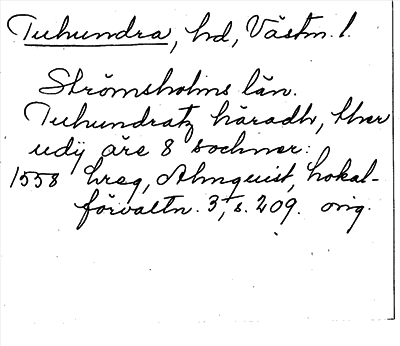 Tuhundra, hd, Västm. l.
Strömsholms län.
Tuhundratz häradh, ther
udij äre 8 sochner:
1558 hreg, Almquist, Lokal-
förvaltn. 3, s. 209. orig.